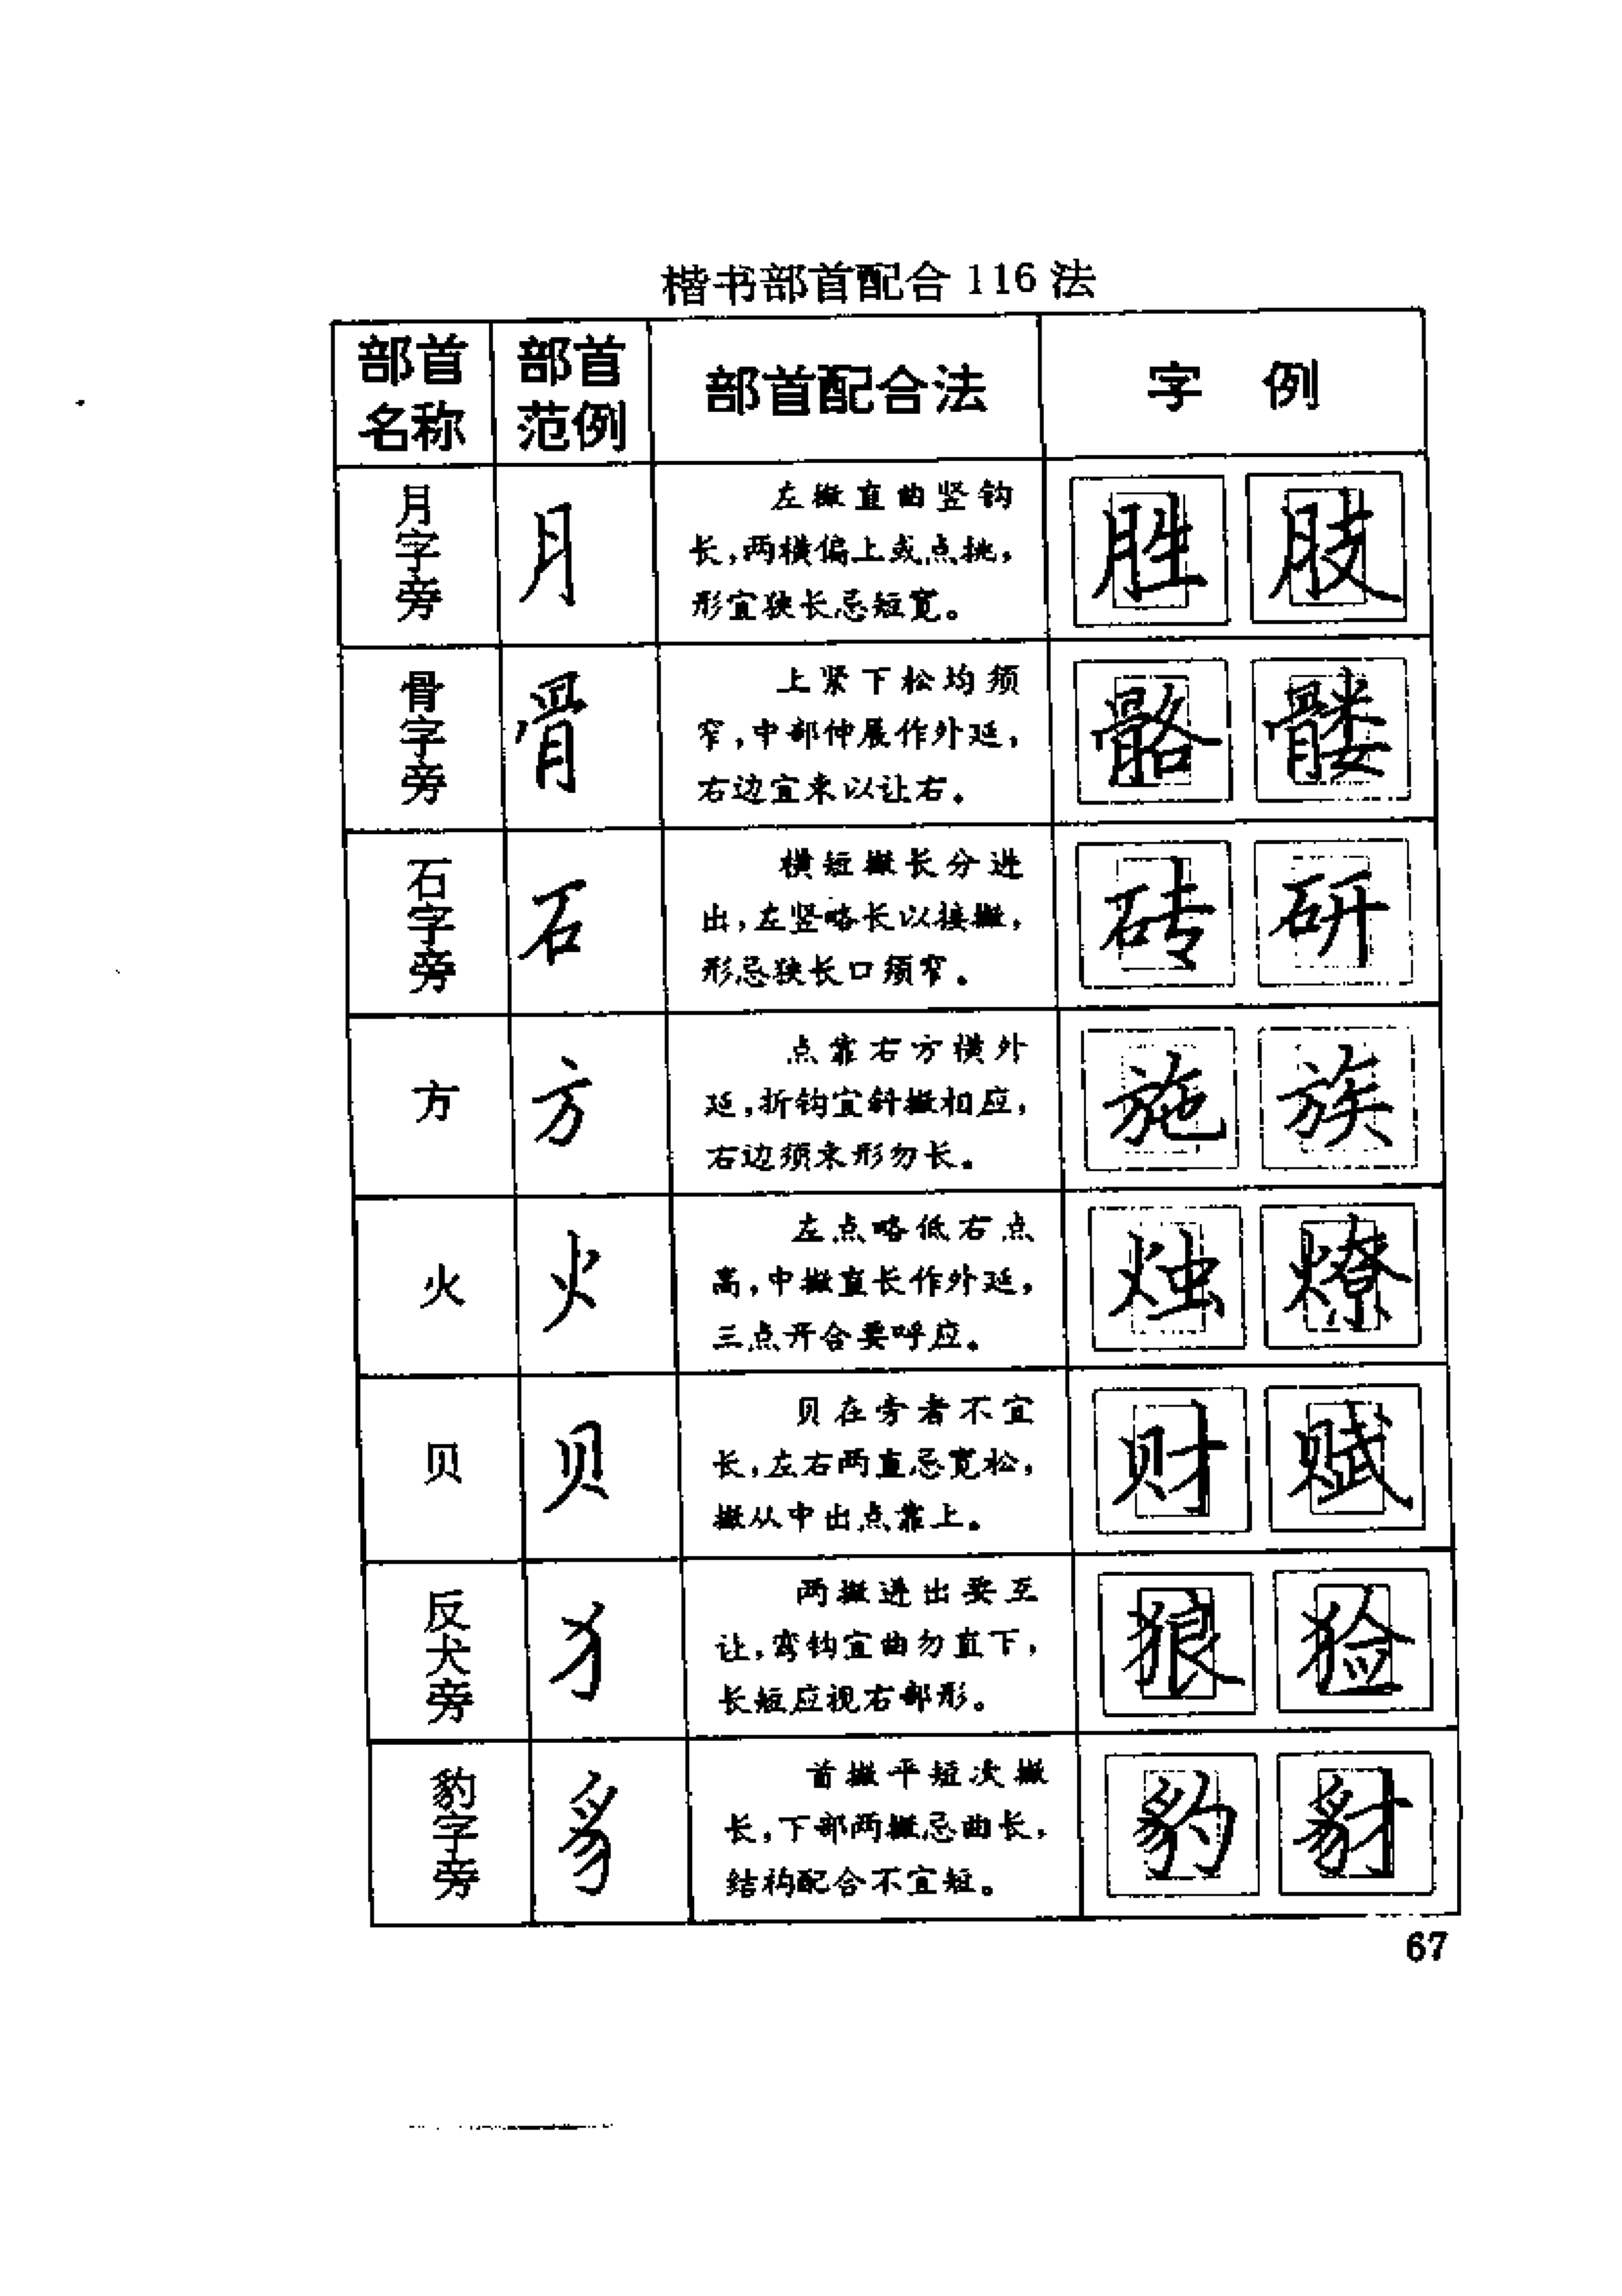 楷书部首配合116法
部首名称
部首范例
部首配合法
字 例
月字旁
月
左撇直曲竖钩
长,两横偏上或点挑,
形宜狭长忌短宽。
胜 肢
骨字旁
骨
上紧下松均须
窄,中部伸展作外延,
右边宜束以让右。
骼 髅
石字旁
石
横短撇长分进
出,左竖略长以接撇,
形忌狭长口须窄。
砖 研
方
方
点靠右方横外
延,折钩宜斜撇相应,
右边须束形勿长。
施 族
火
火
左点略低右点
高,中撇直长作外延,
三点开合要呼应。
烛 燎
贝
贝
贝在旁者不宜
长,左右两直忌宽松,
撇从中出点靠上。
财 赋
反犬旁
犭
两撇进出要互
让,弯钩宜曲勿直下,
长短应视右部形。
狼 猃
豹字旁
豸
首撇平短次撇
长,下部两撇忌曲长,
结构配合不宜短。
豹 豺
67